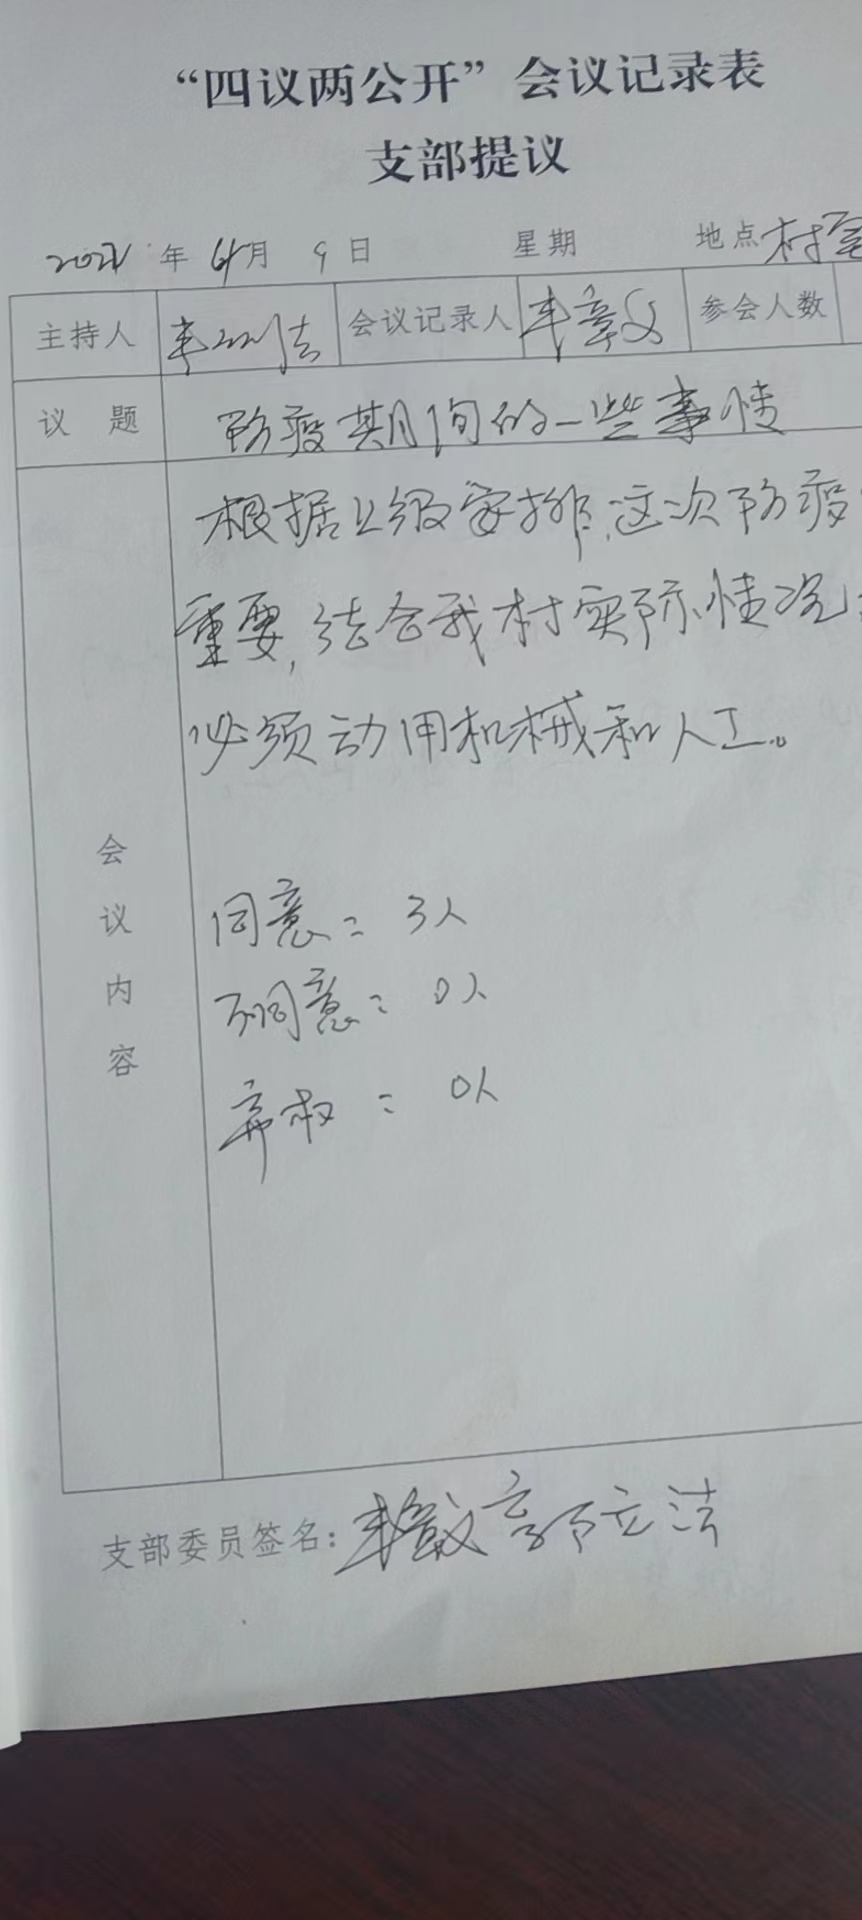 “四议两公开”会议记录表
支部提议
年 月 9 日 星期 地点 村室
主持人 会议记录人 参会人数
议 题 防疫期间的一些事情
根据上级安排,这次防疫
重要,结合我村实际情况
必须动用机械和人工。
会议内容
同意: 3人
不同意: 0人
弃权: 0人
支部委员签名: 郭立法